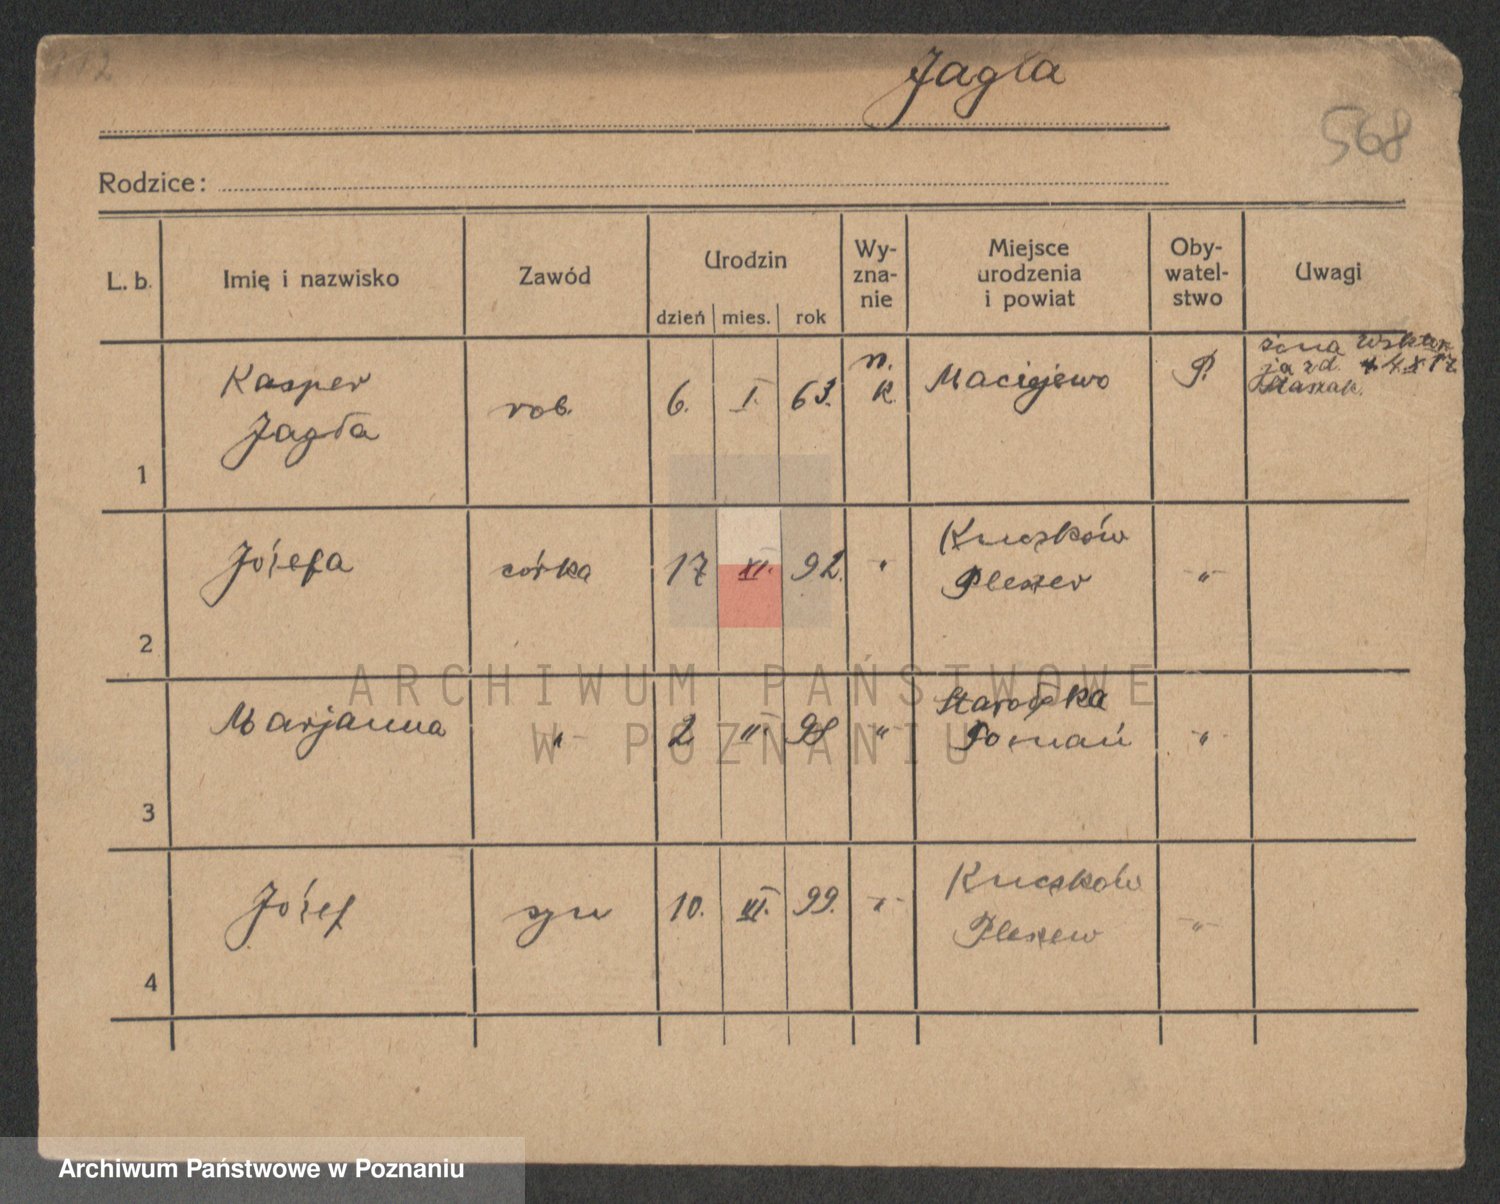 Jagła
568
Rodzice:
L. b. Imię i nazwisko Zawód Urodzin dzień mies. rok Wy-zna-nie Miejsce urodzenia i powiat Oby-watel-stwo Uwagi
1 Kasper Jagła rob. 6. I. 63. r. k. Maciejewo P. żona
zd. Ptaszak.
2 Józefa córka 17 XI. 92. " Kuczków Pleszew "
3 Marjanna " 2. II. 98 " Starołęka Poznań "
4 Józef syn 10. XI. 99. " Kuczków Pleszew "
ARCHIWUM PAŃSTWOWE
W POZNANIU
Archiwum Państwowe w Poznaniu